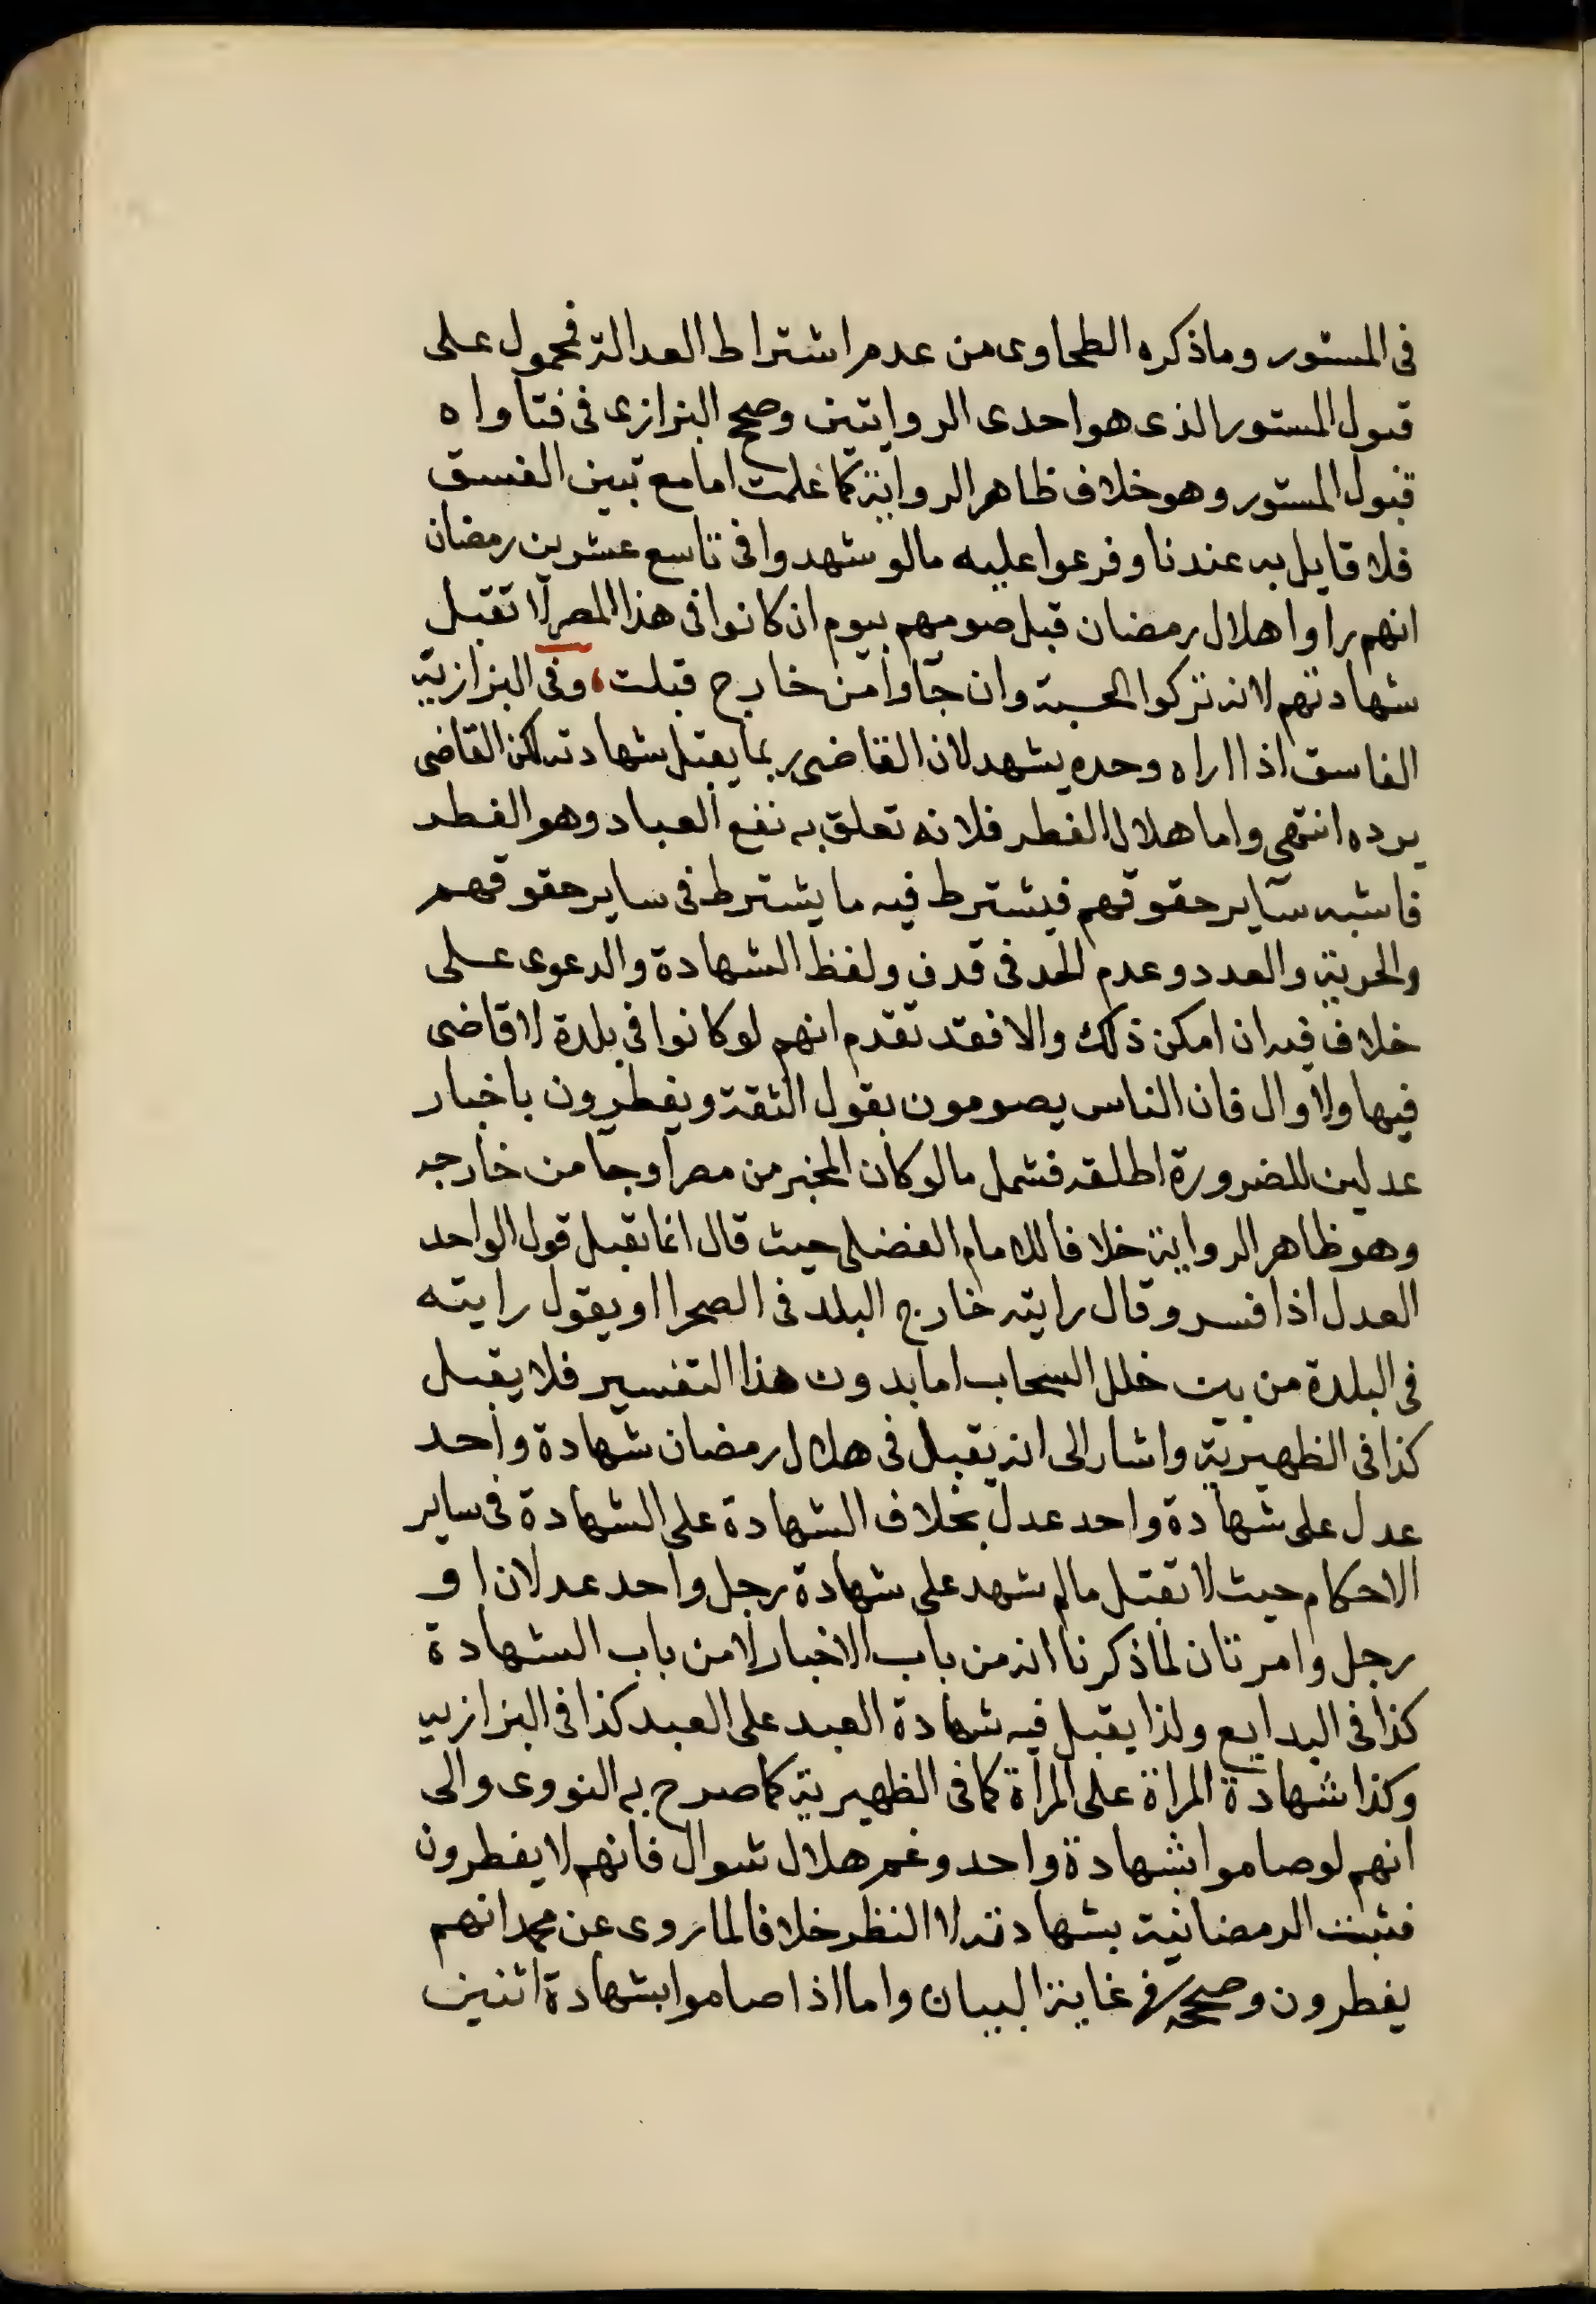 فى المستور وماذكره الطحاوى من عدم اشتراط العدالة فمحمول على
قبول المستور الذى هو احدى الروايتين وصحح البزازى فى فتاواه
قبول المستور وهو خلاف ظاهر الرواية كما علمت اما مع تبين الفسق
فلا قايل به عندنا وفرعوا عليه مالو شهدوا فى تاسع عشرين رمضان
انهم راوا هلال رمضان قبل صومهم بيوم ان كانوا فى هذا المصر لا تقبل
شهادتهم لانه تركوا الحسبة وان جآوا من خارج قبلت، وفى البزازية
الفاسق اذا اراه وحده يشهد لان القاضى ربما يقبل شهادته لكن القاضى
يرده انتهى واما هلال الفطر فلانه تعلق به نفع العباد وهو الفطر
فاشبه ساير حقوقهم فيشترط فيه ما يشترط فى ساير حقوقهم
والحرية والعدد وعدم الحد فى قدف ولفظ الشهادة والدعوى على
خلاف فيه ان امكن ذلك والا فقد تقدم انهم لو كانوا فى بلدة لا قاضى
فيها ولا وال فان الناس يصومون بقول الثقة ويفطرون باخبار
عدلين للضرورة اطلقه فشمل مالو كان المخبر من مصر اوجا من خارجه
وهو ظاهر الرواية خلافا للامام الفضلى حيث قال انما تقبل قول الواحد
العدل اذا فسر وقال رايته خارج البلد فى الصحرا او يقول رايته
فى البلدة من بين خلل السحاب اما بدون هذا التفسير فلا يقبل
كذا فى الظهيرية واشار الى انه يقبل فى هلال رمضان شهادة واحد
عدل على شهادة واحد عدل بخلاف الشهادة على الشهادة فى ساير
الاحكام حيث لا تقبل مالم يشهد على شهادة رجل واحد عدلان او
رجل وامرتان لماذكرنا انه من باب الاخبار لا من باب الشهادة
كذا فى البدايع ولذا يقبل فيه شهادة العبد على العبد كذا فى البزازيه
وكذا شهادة المراة على المراة كما فى الظهيرية كما صرح به النووى والى
انهم لو صاموا بشهادة واحد وغم هلال شوال فانهم لا يفطرون
فثبت الرمضانية بشهادته لا النظر خلافا لما روى عن محمد انهم
يفطرون وصححه فى غاية البيان واما اذا صاموا بشهادة اثنين